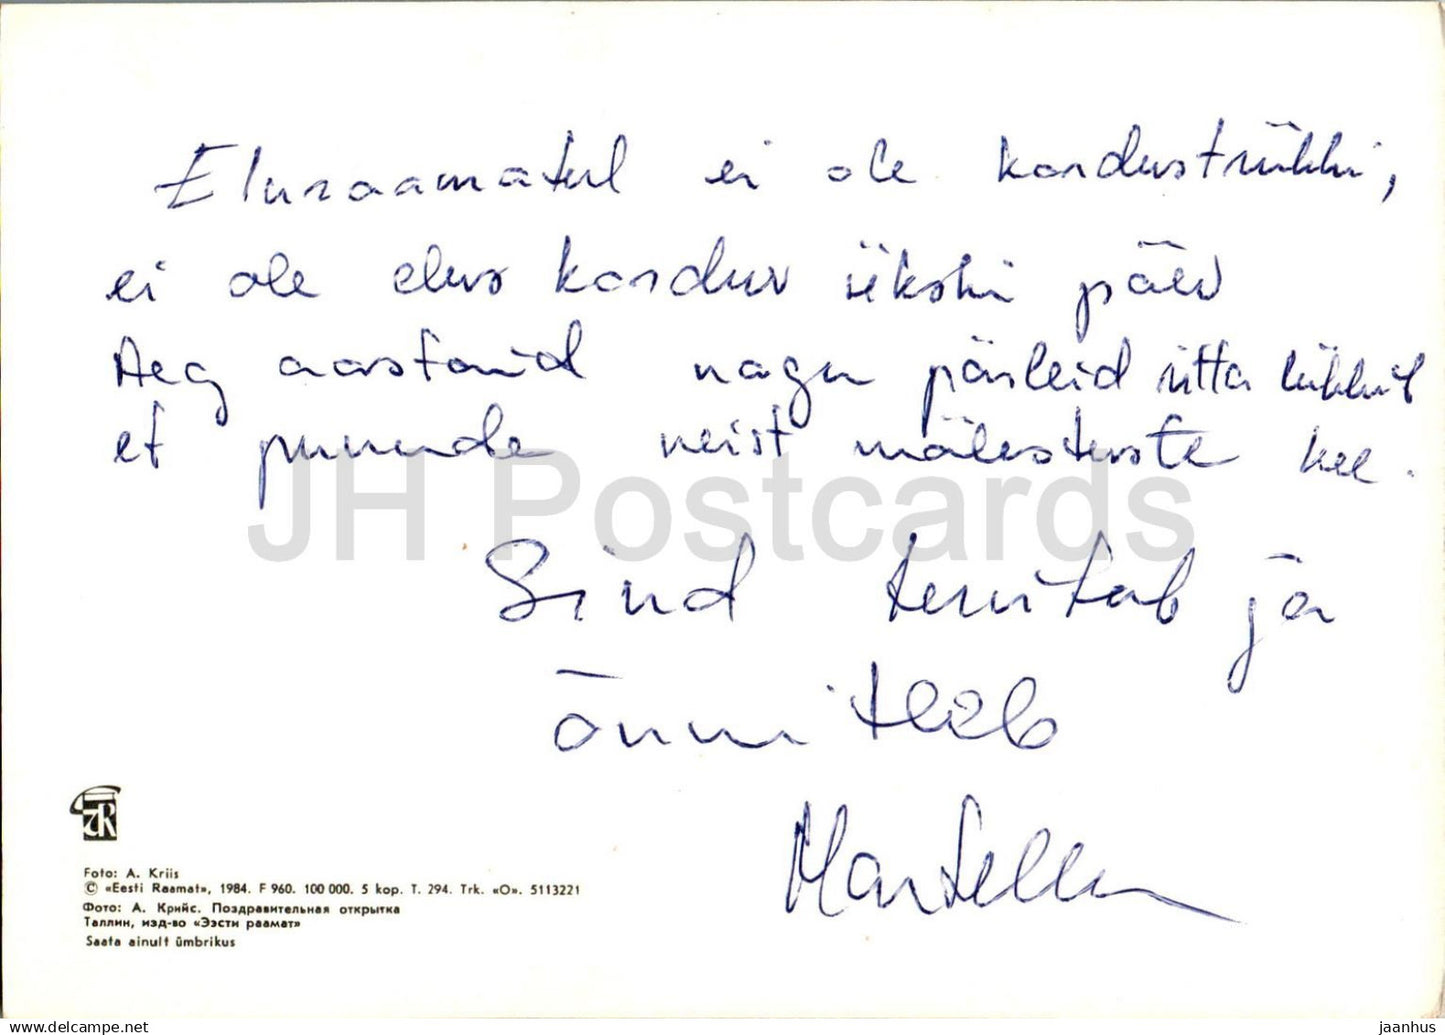 Eluraamatul ei ole kordustrükki,
ei ole elus korduv ükski päev
Aeg aastaid nagu pärleid ritta lükkib
et punuda neist mälestuste kee.
JH Postcards
Sind tervitab ja
õnnitleb
Foto: A. Kriis
© «Eesti Raamat», 1984. F 960. 100 000. 5 kop. T. 294. Trk. «O». 5113221
Фото: А. Крийс. Поздравительная открытка
Таллин, изд-во «Ээсти раамат»
Saata ainult ümbrikus
hippostcard.com
jaanhus